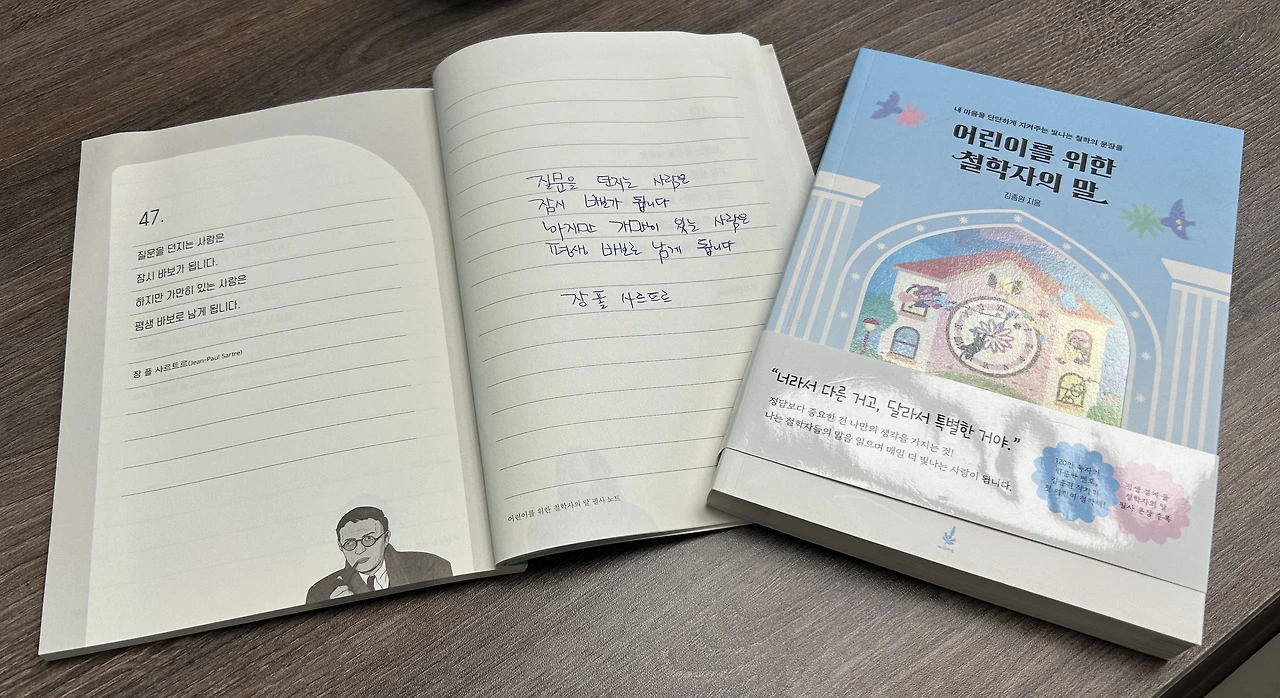 47.
질문을 던지는 사람은
잠시 바보가 됩니다.
하지만 가만히 있는 사람은
평생 바보로 남게 됩니다.
장 폴 사르트르(Jean-Paul Sartre)
질문을 던지는 사람은
잠시 바보가 됩니다
하지만 가만히 있는 사람은
평생 바보로 남게 됩니다
장 폴 사르트르
어린이를 위한 철학자의 말 필사 노트
내 마음을 단단하게 지켜주는 빛나는 철학의 문장들
어린이를 위한
철학자의 말
김종원 지음
“너라서 다른 거고, 달라서 특별한 거야.”
정답보다 중요한 건 나만의 생각을 가지는 것!
나는 철학자들의 말을 읽으며 매일 더 빛나는 사람이 됩니다.
120만 독자의
김종원 작가의
첫 어린이 철학책!
평생 곁에 둘
철학자의 말
필사 문장 수록